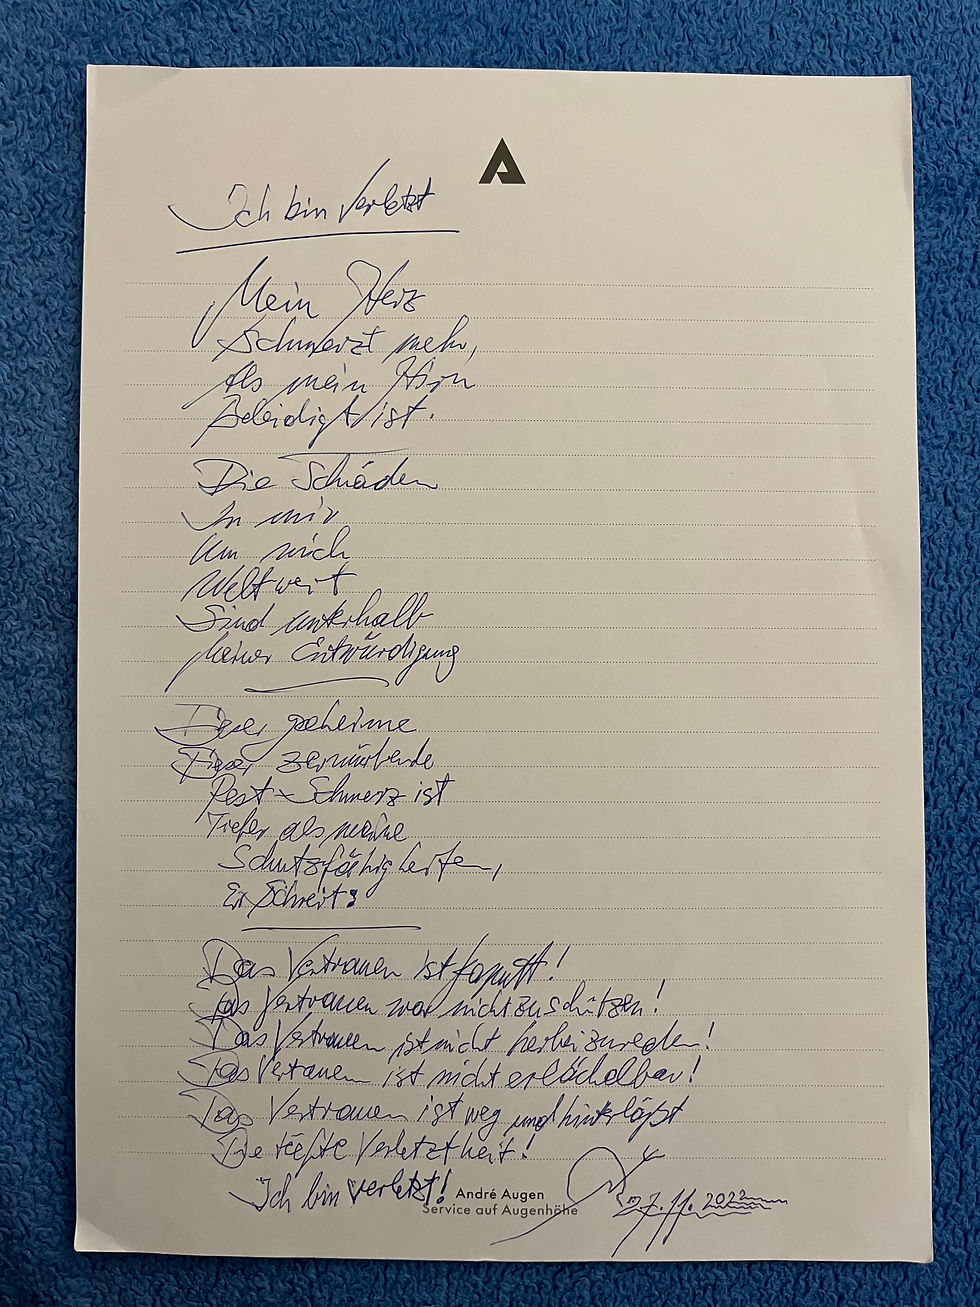 Ich bin verletzt
Mein Herz
Schmerzt mehr,
Als mein Hirn
Beleidigt ist.
Die Schäden
In mir
Um mich
Weltweit
Sind unterhalb
meiner Entwürdigung
Dieser geheime
Dieser zermürbende
Pest-Schmerz ist
Tiefer als meine
Schutzfähigkeiten,
Er Schreit:
Das Vertrauen ist kaputt!
Das Vertrauen war nicht zu schützen!
Das Vertrauen ist nicht herbeizureden!
Das Vertrauen ist nicht erlöchelbar!
Das Vertrauen ist weg und hinterläßt
Die tiefste Verletztheit!
Ich bin verletzt!
André Augen
Service auf Augenhöhe
27.11.2022